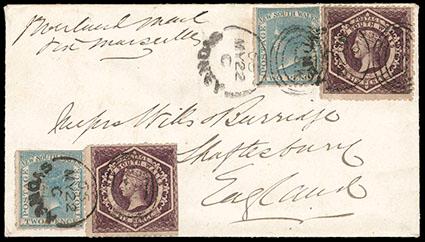 Overland mail
via Marseilles
NEW SOUTH WALES
POSTAGE
TWO PENCE
POSTAGE
SOUTH WALES
SYDNEY
MY 22
Messrs Wills & Burridge
Shaftesbury
England
NEW SOUTH WALES
POSTAGE
TWO PENCE
POSTAGE
SOUTH WALES
SYDNEY
C
MY 22